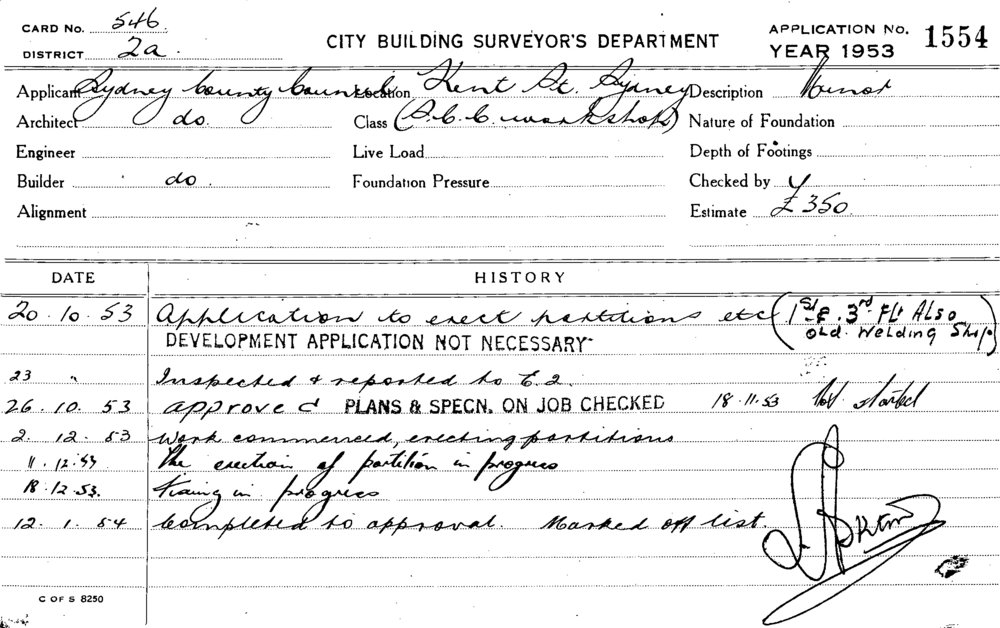 CARD No. 546.
DISTRICT 2a.
CITY BUILDING SURVEYOR'S DEPARTMENT
APPLICATION No. 1554
YEAR 1953
Applicant Sydney County Council Location Kent St. Sydney Description Minor
Architect do. Class (S.C.C. workshop) Nature of Foundation
Engineer Live Load Depth of Footings
Builder do. Foundation Pressure Checked by
Alignment Estimate £350.
DATE HISTORY
20.10.53 Application to erect partitions etc (1st & 3rd Fl: Also
old Welding Shop)
DEVELOPMENT APPLICATION NOT NECESSARY
23 " Inspected & reported to E.2.
26.10.53 approved PLANS & SPECN. ON JOB CHECKED 18.11.53 Not started
2.12.53 Work commenced, erecting partitions
11.12.53 The erection of partition in progress
18.12.53. in progress
12.1.54 Completed to approval. Marked off list.
C OF S 8250